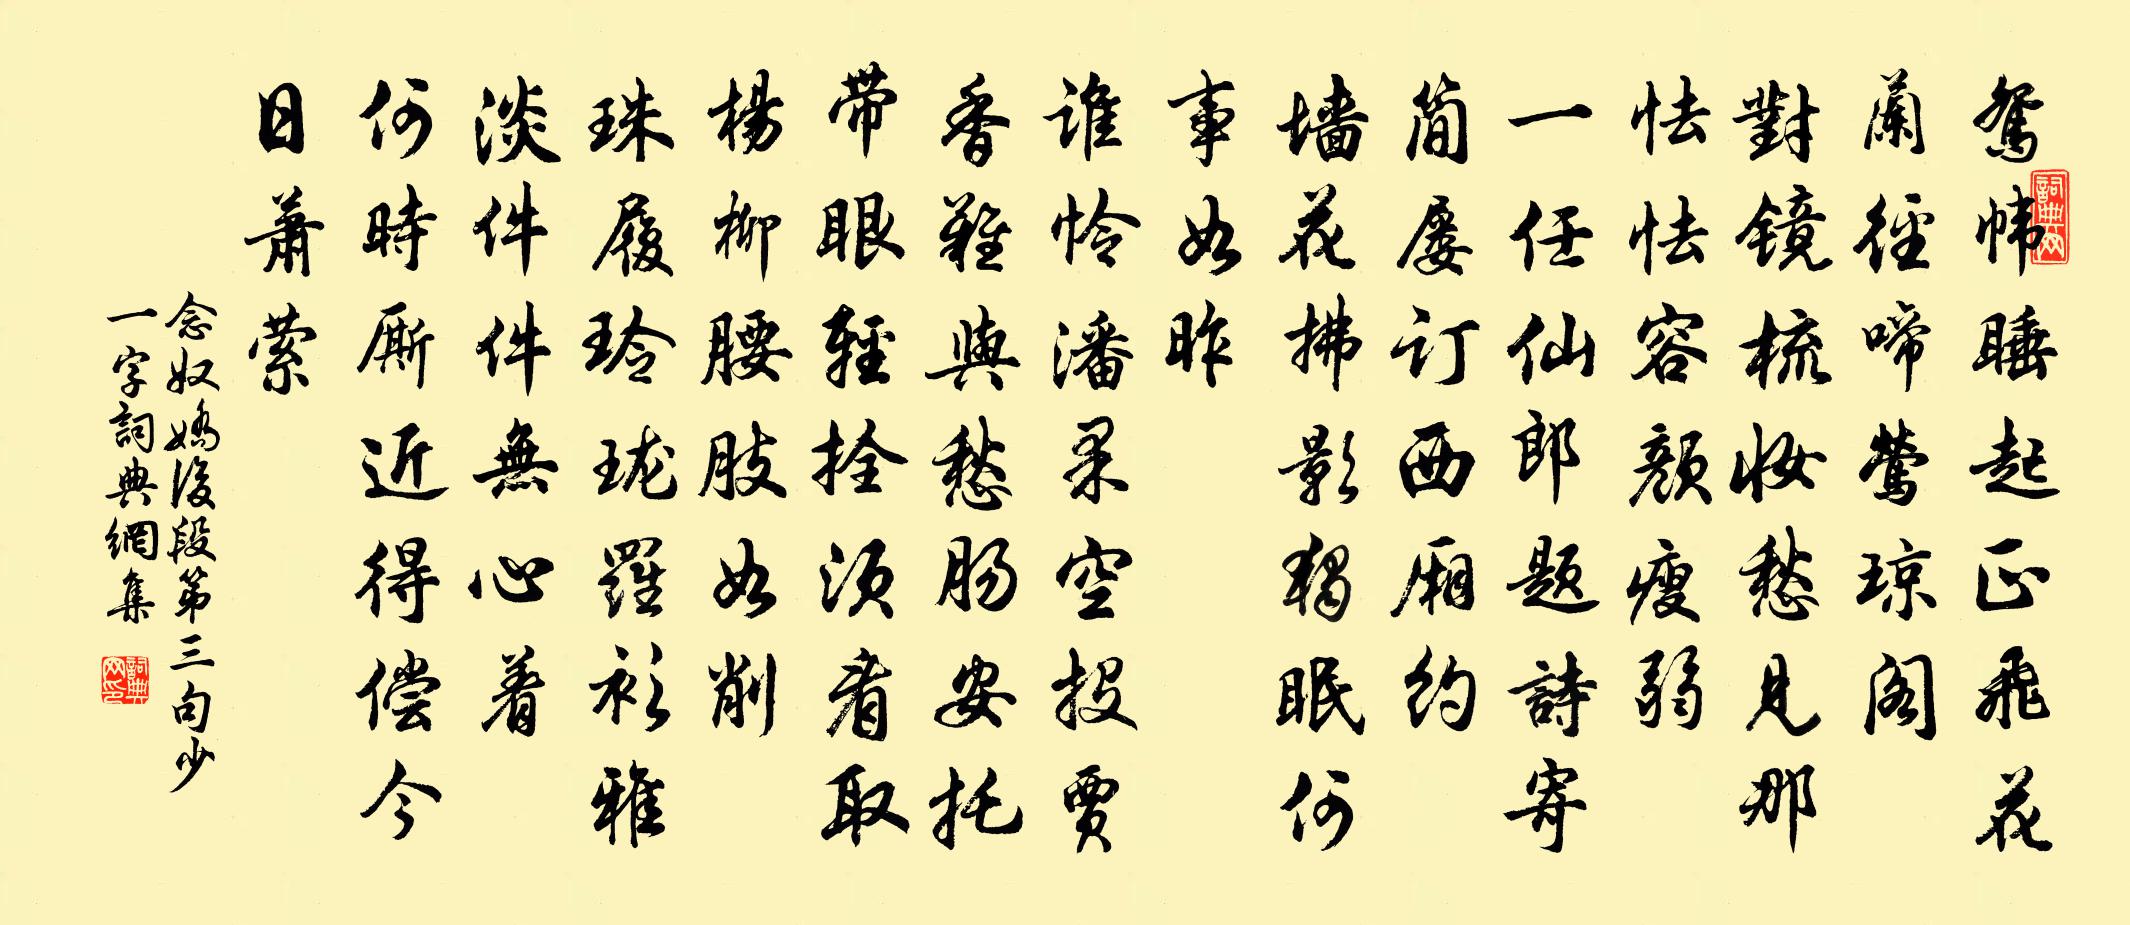 鸳帏睡起正飛花
蘭徑啼鶯琼阁
對鏡梳妝愁見那
怯怯容颜瘦弱
一任仙郎题詩寄
简屡订西厢約
墙花拂影独眠何
事如昨
谁怜潘果空投贾
香難與愁肠安托
带眼輕拴须看取
楊柳腰肢如削
珠履玲珑羅衫雅
淡件件無心着
何時厮近得偿今
日蕭索
念奴嬌後段第三句少
一字詞典網集
詞典网
詞典网印